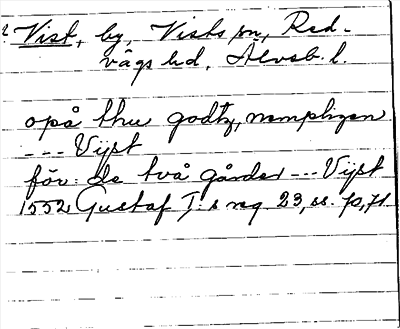 Vist, by, Vists sn, Red-
vägs hd, Älvsb. l.
opå thu godtz, nempligen
--- Vijst
för: de två gårder --- Vijst
1552 Gustaf I:s reg 23, ss. 70, 71.